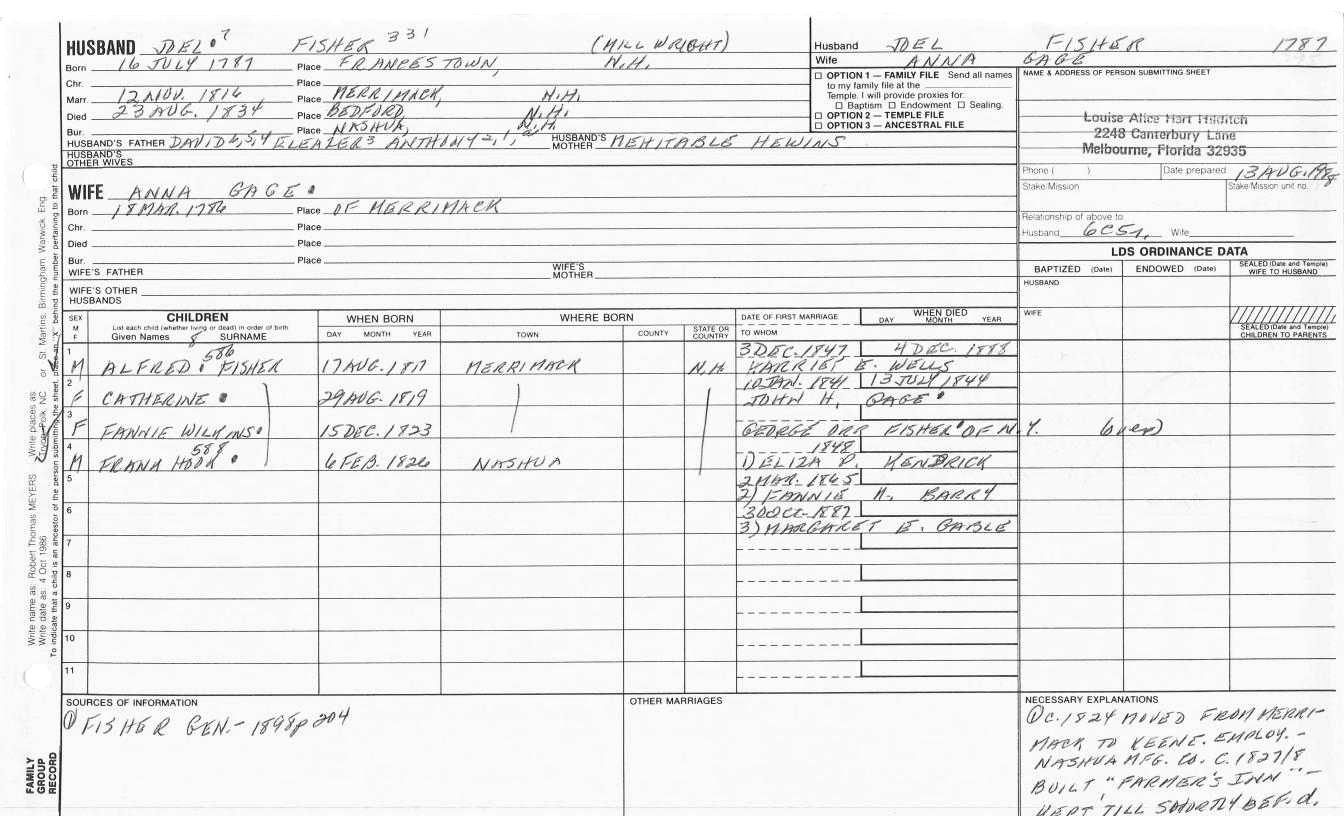 HUSBAND JOEL 7 FISHER 331 (MILL WRIGHT)
Born 16 JULY 1787 Place FRANCESTOWN, N.H.
Chr. Place
Marr. 12 NOV. 1816 Place MERRIMACK, N.H.
Died 23 AUG. 1834 Place BEDFORD, N.H.
Bur. Place NASHUA, N.H.
HUSBAND'S FATHER DAVID 6,5,4 ELEAZER 3 ANTHONY 2,1, HUSBAND'S MOTHER MEHITABLE HEWINS
HUSBAND'S OTHER WIVES
WIFE ANNA GAGE
Born 18 MAR. 1786 Place OF MERRIMACK
Chr. Place
Died Place
Bur. Place
WIFE'S FATHER WIFE'S MOTHER
WIFE'S OTHER HUSBANDS
Husband JOEL FISHER 1787
Wife ANNA GAGE
☐ OPTION 1 — FAMILY FILE Send all names
to my family file at the
Temple. I will provide proxies for:
☐ Baptism ☐ Endowment ☐ Sealing.
☐ OPTION 2 — TEMPLE FILE
☐ OPTION 3 — ANCESTRAL FILE
NAME & ADDRESS OF PERSON SUBMITTING SHEET
Louise Alice Hart Hilditch
2248 Canterbury Lane
Melbourne, Florida 32935
Phone ( ) Date prepared 13 AUG. 1988
Stake/Mission Stake/Mission unit no.
Relationship of above to:
Husband 6C5r, Wife
LDS ORDINANCE DATA
BAPTIZED (Date) ENDOWED (Date) SEALED (Date and Temple) WIFE TO HUSBAND
HUSBAND
WIFE
SEALED (Date and Temple) CHILDREN TO PARENTS
SEX M F CHILDREN WHEN BORN WHERE BORN DATE OF FIRST MARRIAGE WHEN DIED
List each child (whether living or dead) in order of birth
Given Names 8 SURNAME DAY MONTH YEAR TOWN COUNTY STATE OR COUNTRY TO WHOM DAY MONTH YEAR
586 3 DEC. 1847 4 DEC. 1888
1 M ALFRED FISHER 17 AUG. 1817 MERRIMACK N.H. HARRIET E. WELLS
10 JAN. 1841 13 JULY 1844
2 F CATHERINE 29 AUG. 1819 JOHN H. GAGE
3 F FANNIE WILKINS 15 DEC. 1823 GEORGE ORR FISHER OF N.Y. (over)
588 1848
4 M FRANA HOOK 6 FEB. 1826 NASHUA 1) ELIZA P. KENDRICK
5 2 MAR. 1865
2) FANNIE H. BARRY
6 30 OCT. 1882
3) MARGARET E. GABLE
7
8
9
10
11
SOURCES OF INFORMATION
① FISHER GEN.- 1898 p 204
OTHER MARRIAGES
NECESSARY EXPLANATIONS
① C. 1824 MOVED FROM MERRI-
MACK TO KEENE. EMPLOY. -
NASHUA MFG. CO. C. 1827/8
BUILT "FARMER'S INN" -
KEPT TILL SHORTLY BEF. d.
FAMILY GROUP RECORD
Write name as: Robert Thomas MEYERS Write places as: Tryon, Polk, NC or St. Martins, Birmingham, Warwick, Eng.
Write date as: 4 Oct 1986
To indicate that a child is an ancestor of the person submitting the sheet, place an "X" behind the number pertaining to that child